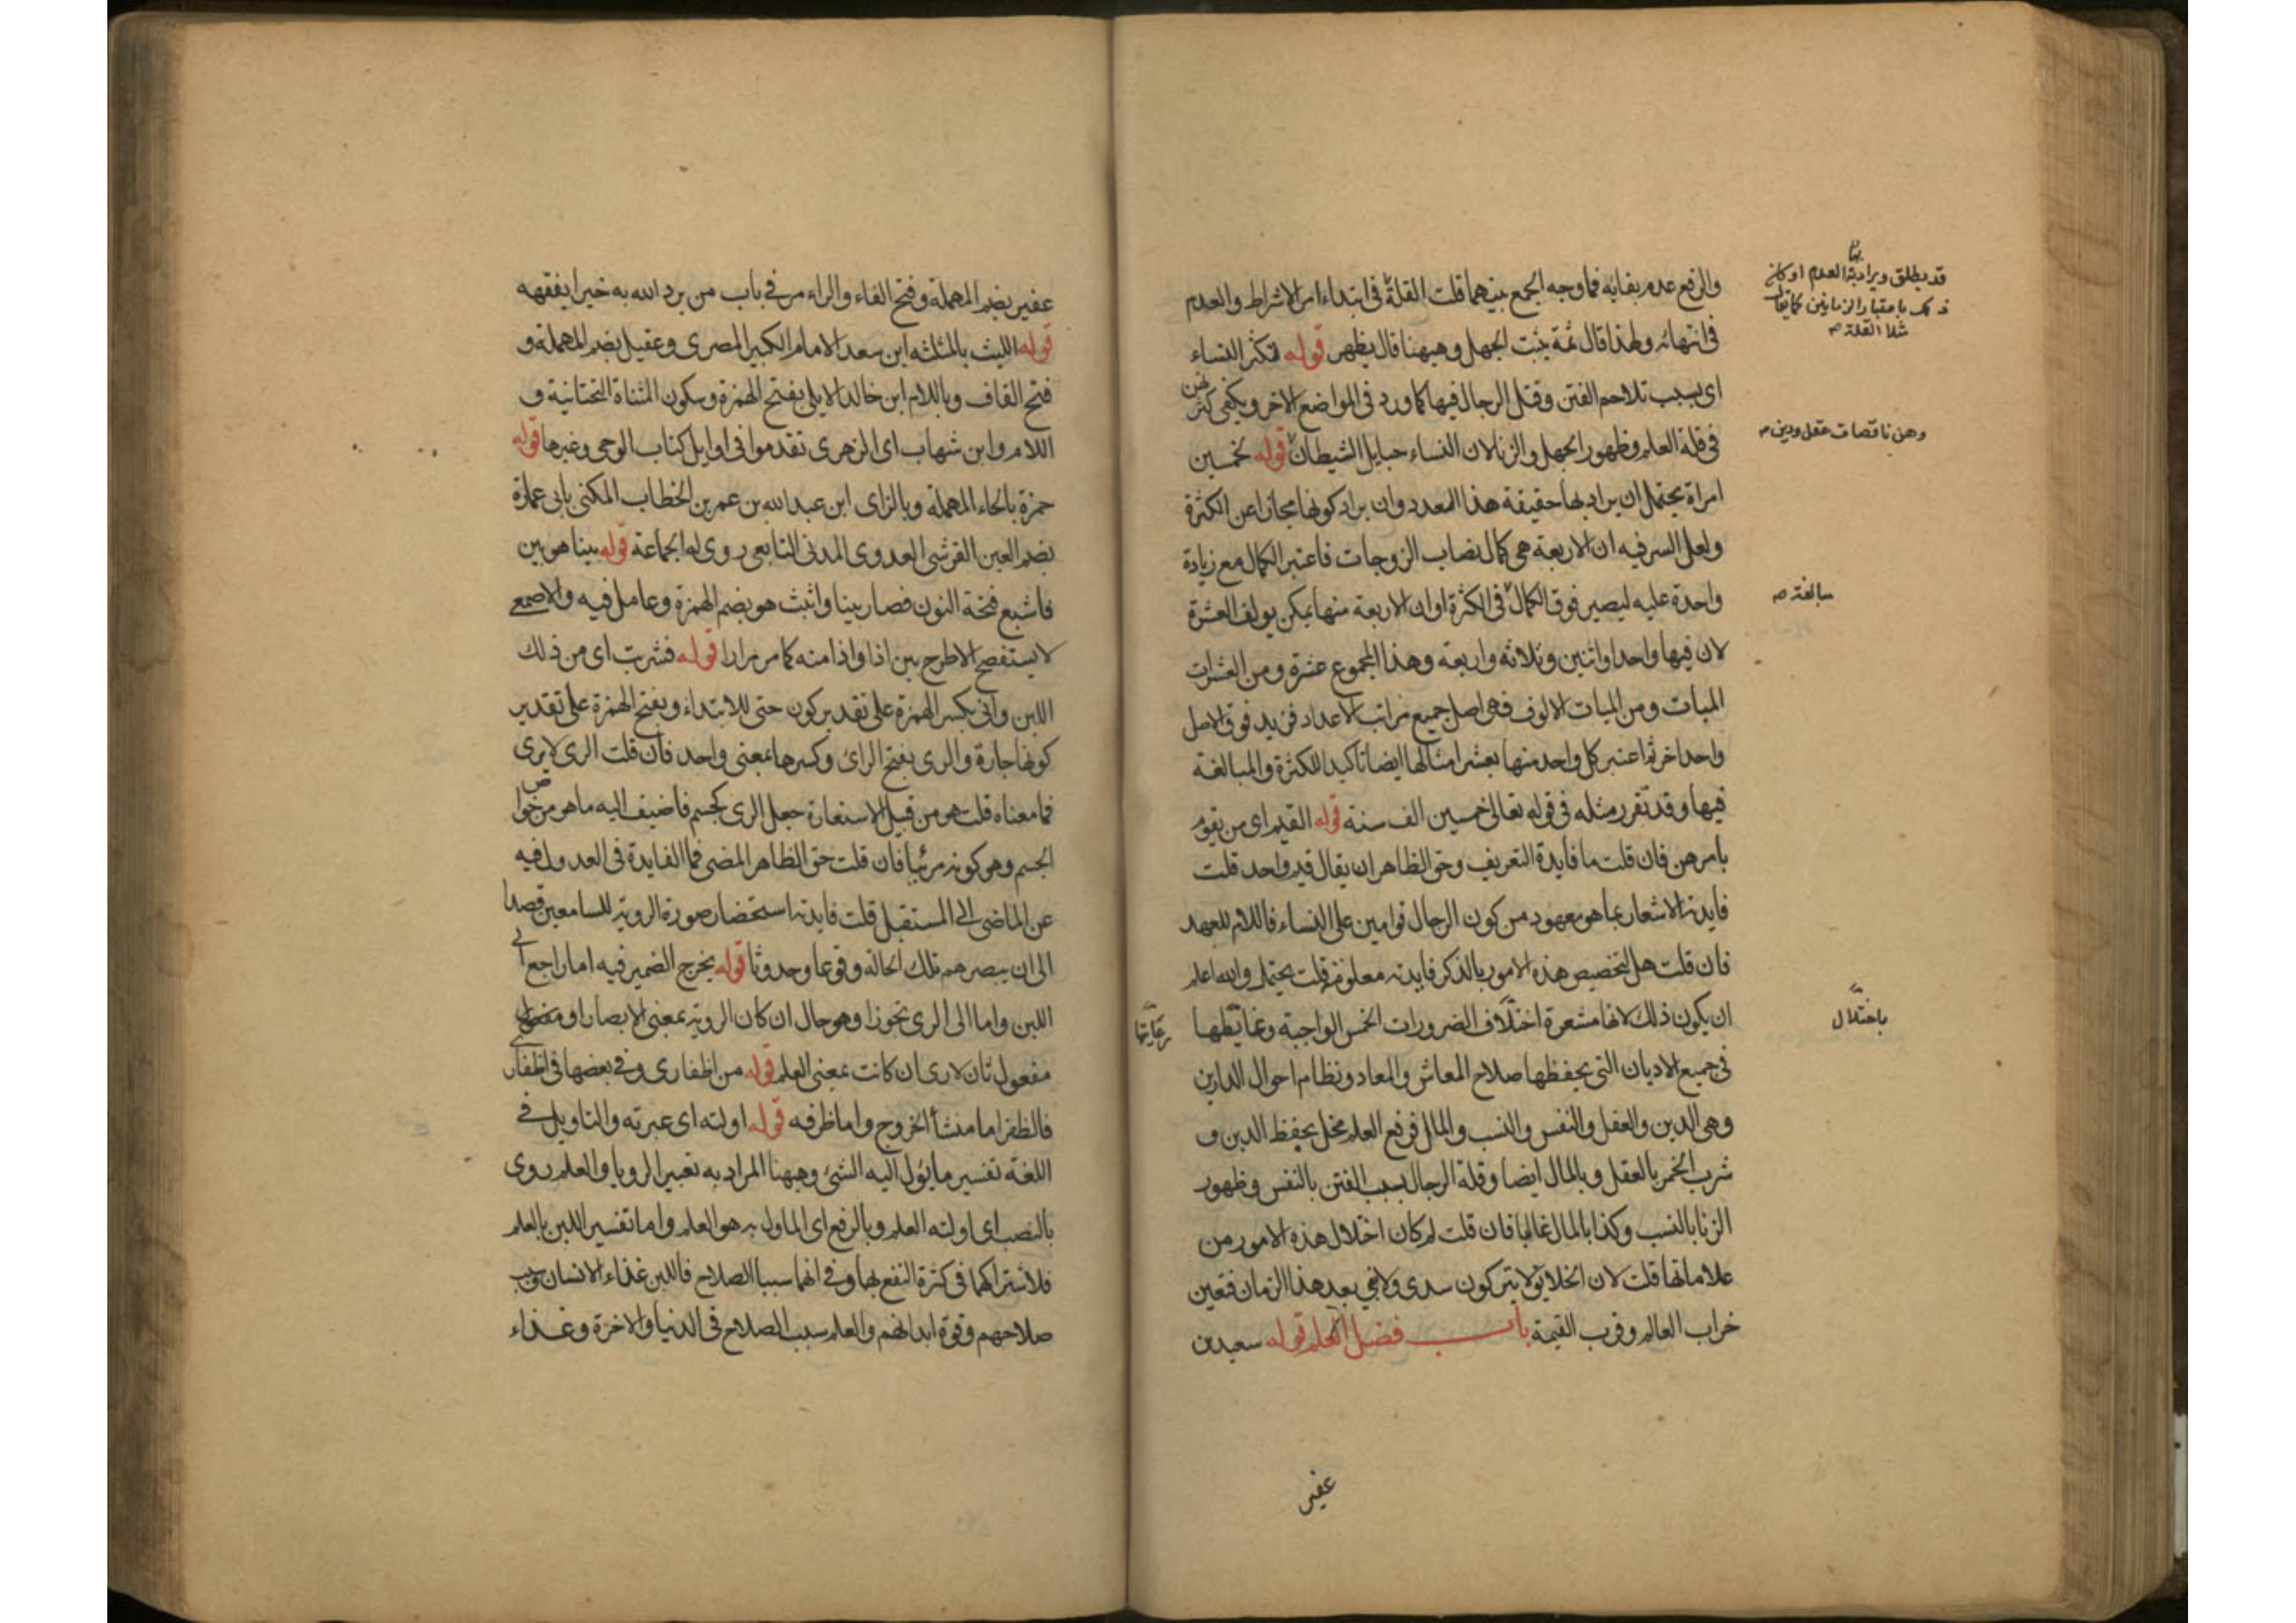 والرفع عدم بقائه فما وجه الجمع بينهما قلت القلة في ابتداء امر الاشراط والعدم
في انتهائه ولهذا قال ثمة يثبت الجهل وههنا قال يظهر قوله تكثر النساء
اى بسبب تلاحم الفتن وقتل الرجال فيها كما ورد في المواضع الاخر ويكفى كثرتهن
في قلة العلم وظهور الجهل والزنا لان النساء حبايل الشيطان قوله لخمسين
امراة يحتمل ان يراد بها حقيقة هذا العدد وان يراد كونها مجازا عن الكثرة
ولعل السر فيه ان الاربعة هى كمال نصاب الزوجات فاعتبر الكمال مع زيادة
واحدة عليه ليصير فوق الكمال في الكثرة او ان الاربعة منها يمكن يولف العشرة
لان فيها واحدا واثنين وثلاثة واربعة وهذا المجموع عشرة ومن العشرات
الميات ومن الميات الالوف فهى اصل جميع مراتب الاعداد فزيد فوق الاصل
واحد اخر ثم اعتبر كل واحد منها بعشر امثالها ايضا تاكيدا للكثرة والمبالغة
فيها وقد تقرر مثله في قوله تعالى خمسين الف سنة قوله القيم اى من يقوم
بامرهن فان قلت ما فايدة التعريف وحق الظاهر ان يقال قيم واحد قلت
فايدته الاشعار بما هو معهود من كون الرجال قوامين على النساء فاللام للعهد
فان قلت هل لتخصيص هذه الامور بالذكر فايدة معلومة قلت يحتمل والله اعلم
ان يكون ذلك لانها مشعرة اختلاف الضرورات الخمس الواجبة
في جميع الاديان التى بحفظها صلاح المعاش والمعاد ونظام احوال الدارين
وهى الدين والعقل والنفس والنسب والمال فرفع العلم مخل بحفظ الدين و
شرب الخمر بالعقل وبالمال ايضا وقلة الرجال بسبب الفتن بالنفس وظهور
الزنا بالنسب وكذا بالمال غالبا فان قلت لم كان اختلال هذه الامور من
علاماتها قلت لان الخلايق لا يتركون سدى ولا نبي بعد هذا الزمان فتعين
خراب العالم وقرب القيمة باب فضل العلم قوله سعيد بن
قد يطلق ويراد بها العدم او كان
ذلك باعتبار الزمانين كما يقال
مثلا القلة
وهن ناقصات عقل ودين
مبالغة
باختلال
رعايتها
عفير
عفير بضم المهملة وفتح الفاء والراء مر في باب من يرد الله به خيرا يفقهه
قوله الليث بالمثلثه ابن سعد الامام الكبير المصرى وعقيل بضم المهملة و
فتح القاف وباللام ابن خالد الايلى بفتح الهمزة وسكون المثناة التحتانية و
اللام وابن شهاب اى الزهرى تقدموا في اوايل كتاب الوحى وغيرها قوله
حمزة بالحاء المهملة وبالزاى ابن عبد الله بن عمر بن الخطاب المكنى بابى عمارة
بضم العين القرشى العدوى المدنى التابعى روى له الجماعة قوله بينا هو بين
فاشبع فتحة النون فصار بينا واتيت هو بضم الهمزة وعامل فيه والاصمعى
لا يستفصح الا طرح بين اذا واذا منه كما مر مرارا قوله فشربت اى من ذلك
اللبن وانى بكسر الهمزة على تقدير كون حتى للابتداء وبفتح الهمزة على تقدير
كونها جارة والرى بفتح الرائ وكسرها بمعنى واحد فان قلت الرى لا يرى
فما معناه قلت هو من قبيل الاستعارة جعل الرى كجسم فاضيف اليه ما هو من خواص
الجسم وهو كونه مرئيا فان قلت حق الظاهر المضى فما الفايدة في العدول فيه
عن الماضى الى المستقبل قلت فايدته استحضار صورة الروية للسامعين قصدا
الى ان يبصرهم تلك الحالة وقوعا وحدوثا قوله يخرج الضمير فيه اما راجع الى
اللبن واما الى الرى تجوزا وهو حال ان كان الروية بمعنى الابصار او
مفعول ثان لارى ان كانت بمعنى العلم قوله من اظفارى وفي بعضها في اظفارى
فالظفر اما منشأ الخروج واما ظرفه قوله اولته اى عبرته والتاويل في
اللغة تفسير ما يؤل اليه الشئ وههنا المراد به تعبير الرويا والعلم روى
بالنصب اى اولته العلم وبالرفع اى الماول به هو العلم واما تفسير اللبن بالعلم
فلاشتراكهما في كثرة النفع بها وفي انهما سببا الصلاح فاللبن غذاء الانسان وسبب
صلاحهم وقوة ابدانهم والعلم سبب الصلاح في الدنيا والاخرة وغذاء